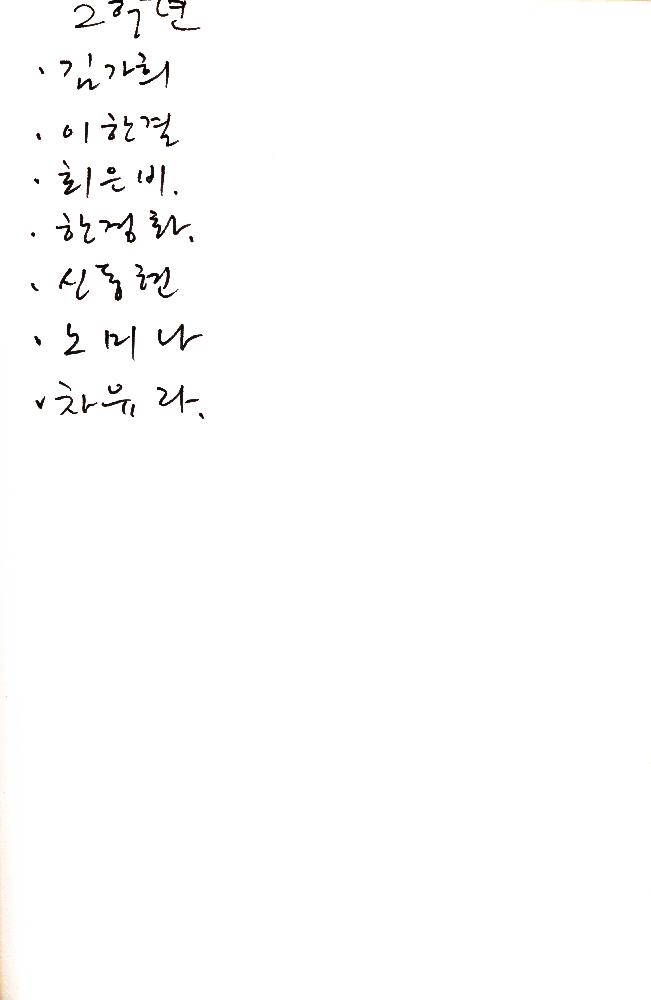 2학년
· 김가희
· 이한결
· 최은비.
· 한정화.
· 신동현
· 노미나
· 차유라.